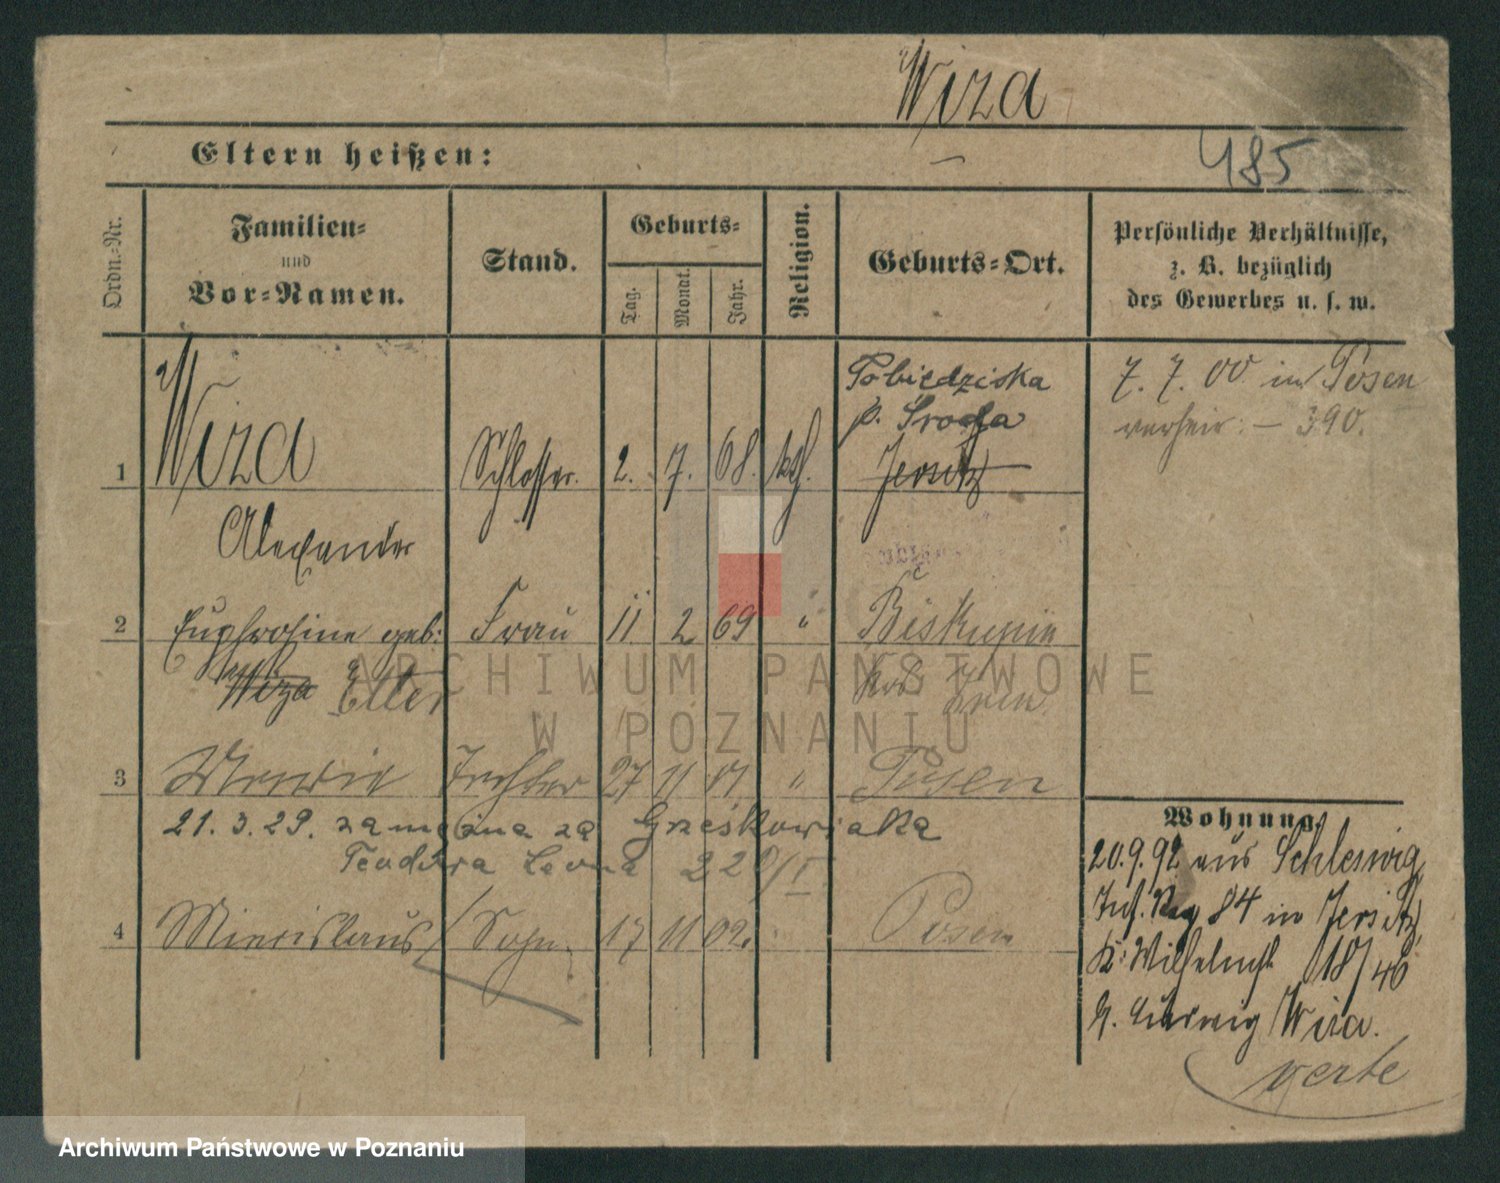 Wiza
Eltern heißen: —
485
Ordn.-Nr.
Familien-
und
Vor-Namen.
Stand.
Geburts-
Tag.
Monat.
Jahr.
Religion.
Geburts-Ort.
Persönliche Verhältnisse,
z. B. bezüglich
des Gewerbes u. s. w.
Pobiedziska
p. Środa
1 Wiza Schlosser. 2. 7. 68. kth. Jersitz
Alexander
7. 7. 00 in Posen
verheir. — 390.
2 Euphrosine geb: Frau 11 2 69 " Biskupin
Wiza Etter
3 Tochter 27 11 01 " Posen
21. 3. 29. zamężna za Grześkowiaka
Teodora Leona
4 Miecislaus Sohn 17 11 02. Posen
Wohnung.
20.9.92 aus Schleswig
Inf. Reg 84 in Jersitz,
K. Wilhelmst 18/46
b. Ludwig Wiza.
verte
ARCHIWUM PAŃSTWOWE
W POZNANIU
Archiwum Państwowe w Poznaniu